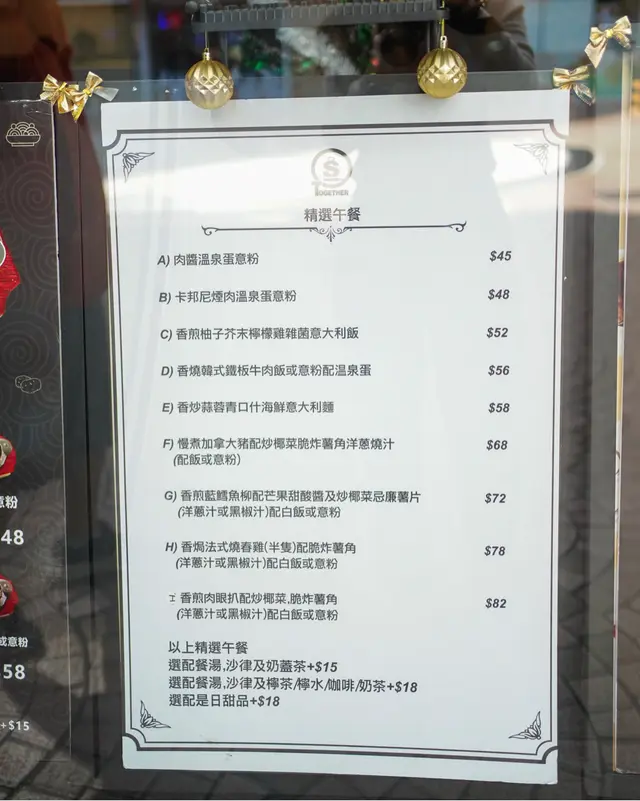 TOGETHER
精選午餐
A) 肉醬溫泉蛋意粉 $45
B) 卡邦尼煙肉溫泉蛋意粉 $48
C) 香煎柚子芥末檸檬雞雜菌意大利飯 $52
D) 香燒韓式鐵板牛肉飯或意粉配溫泉蛋 $56
E) 香炒蒜蓉青口什海鮮意大利麵 $58
F) 慢煮加拿大豬配炒椰菜脆炸薯角洋蔥燒汁 $68
(配飯或意粉)
G) 香煎藍鱈魚柳配芒果甜酸醬及炒椰菜忌廉薯片 $72
(洋蔥汁或黑椒汁)配白飯或意粉
H) 香焗法式燒春雞(半隻)配脆炸薯角 $78
(洋蔥汁或黑椒汁)配白飯或意粉
I 香煎肉眼扒配炒椰菜,脆炸薯角 $82
(洋蔥汁或黑椒汁)配白飯或意粉
以上精選午餐
選配餐湯,沙律及奶蓋茶+$15
選配餐湯,沙律及檸茶/檸水/咖啡/奶茶+$18
選配是日甜品+$18
意粉
48
或意粉
58
+$15